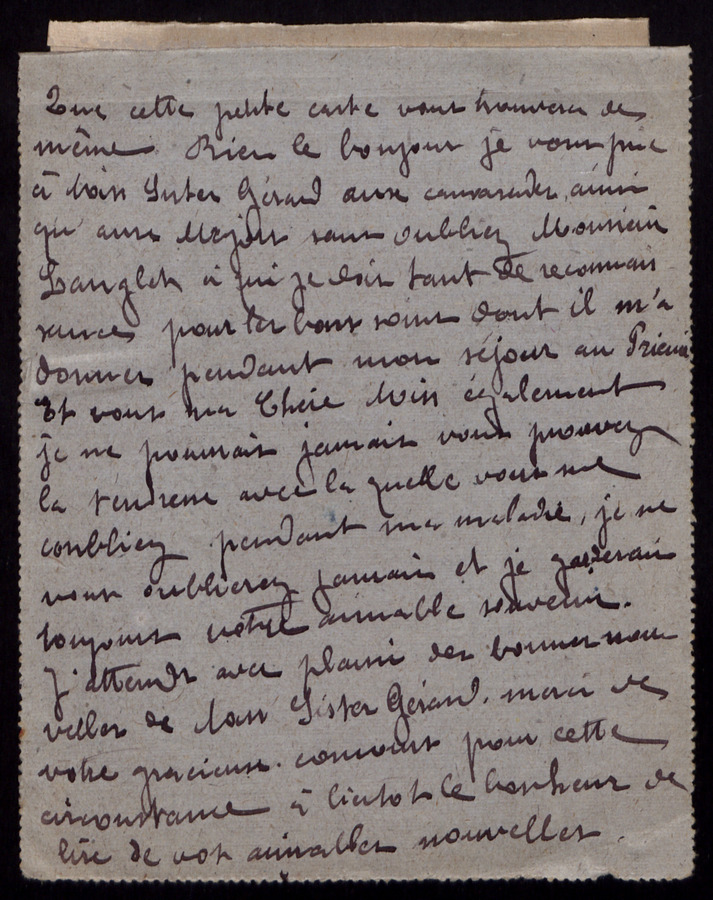 Que cette petite carte vous trouvera de
même Bien le bonjour je vous prie
à Miss Sister Gérard aux camarades, ainsi
qu'aux Majors sans oubliez Monsieur
Langlet à qui je dois tant de reconnais
sances pour les bons soins dont il m'a
donner pendant mon séjour au Prieuré
Et vous ma Chère Miss également
je ne pourrait jamais vous prouvez
la tendresse avec la quelle vous me
combliez pendant ma maladie, je ne
vous oublierez jamais et je garderais
toujours votre aimable souvenir.
J'attends avec plaisir des bonnes nou
velles de Miss Sister Gérard. merci de
votre gracieuse concours pour cette
circonstance à bientot le bonheur de
lire de vos aimables nouvelles.